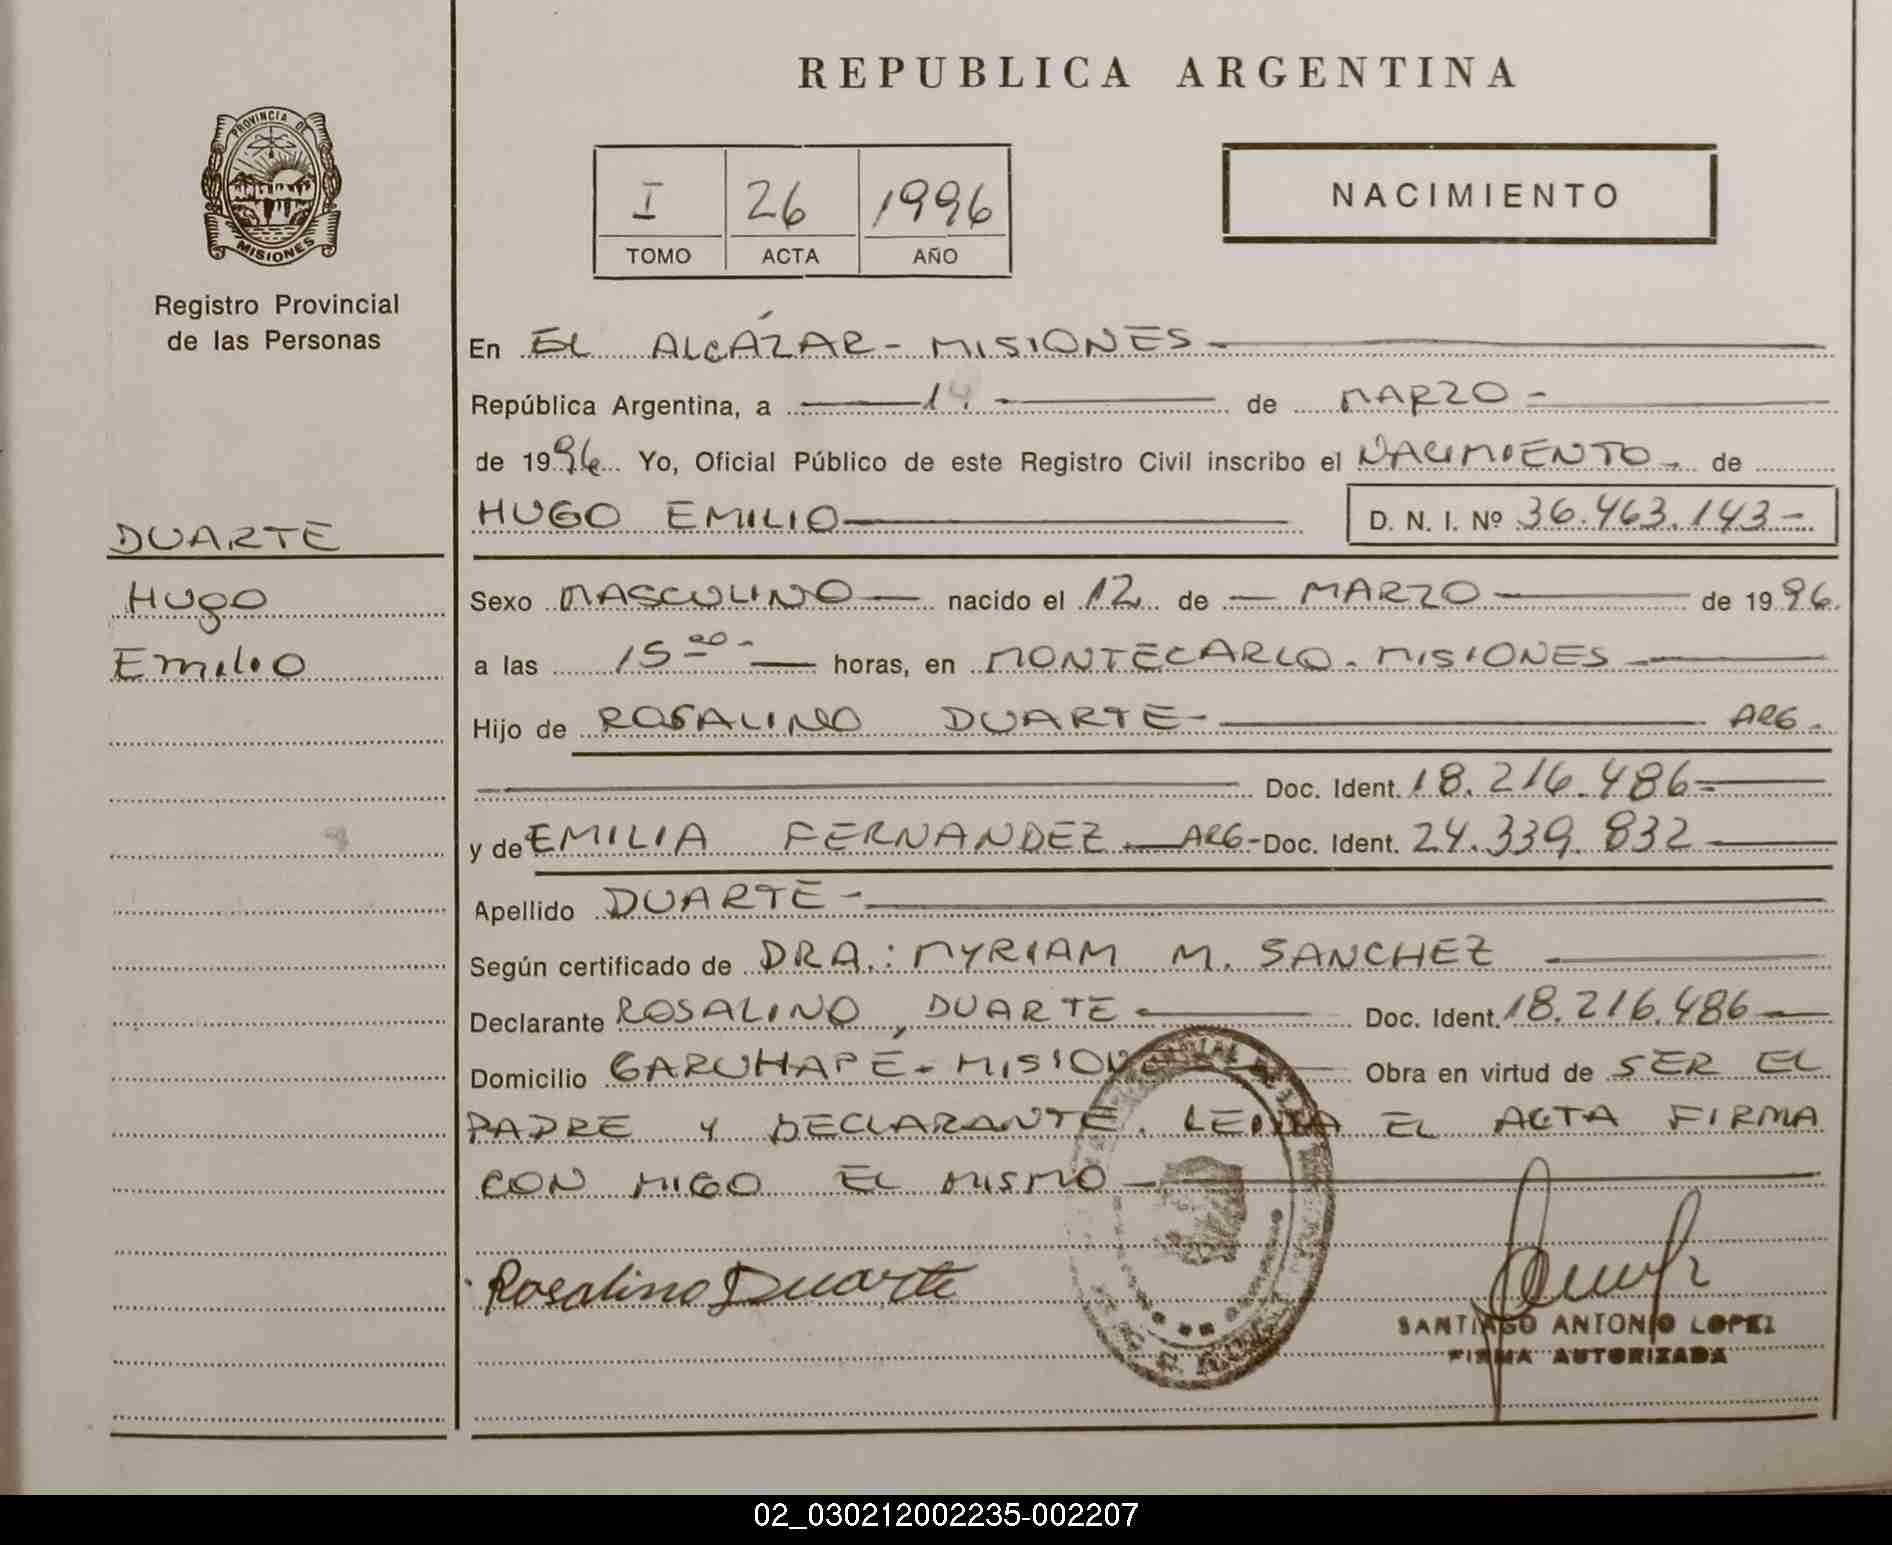 REPUBLICA ARGENTINA
PROVINCIA DE
MISIONES
Registro Provincial
de las Personas
I 26 1996
TOMO ACTA AÑO
NACIMIENTO
DUARTE
Hugo
Emilio
En EL ALCÁZAR - MISIONES
República Argentina, a 14 de MARZO -
de 1996 Yo, Oficial Público de este Registro Civil inscribo el NACIMIENTO de
HUGO EMILIO D. N. I. Nº 36.463.143-
Sexo MASCULINO nacido el 12 de MARZO de 1996.
a las 15 00 - horas, en MONTECARLO - MISIONES
Hijo de ROSALINO DUARTE - ARG.
Doc. Ident. 18.216.486
y de EMILIA FERNANDEZ ARG - Doc. Ident. 24.339.832
Apellido DUARTE -
Según certificado de DRA.: MYRIAM M. SANCHEZ
Declarante ROSALINO DUARTE Doc. Ident. 18.216.486
Domicilio GARUHAPE - MISION Obra en virtud de SER EL
PADRE Y DECLARANTE. LEIDA EL ACTA FIRMA
CON MIGO EL MISMO
Rosalino Duarte
SANTIAGO ANTONIO LOPEZ
FIRMA AUTORIZADA
02_030212002235-002207